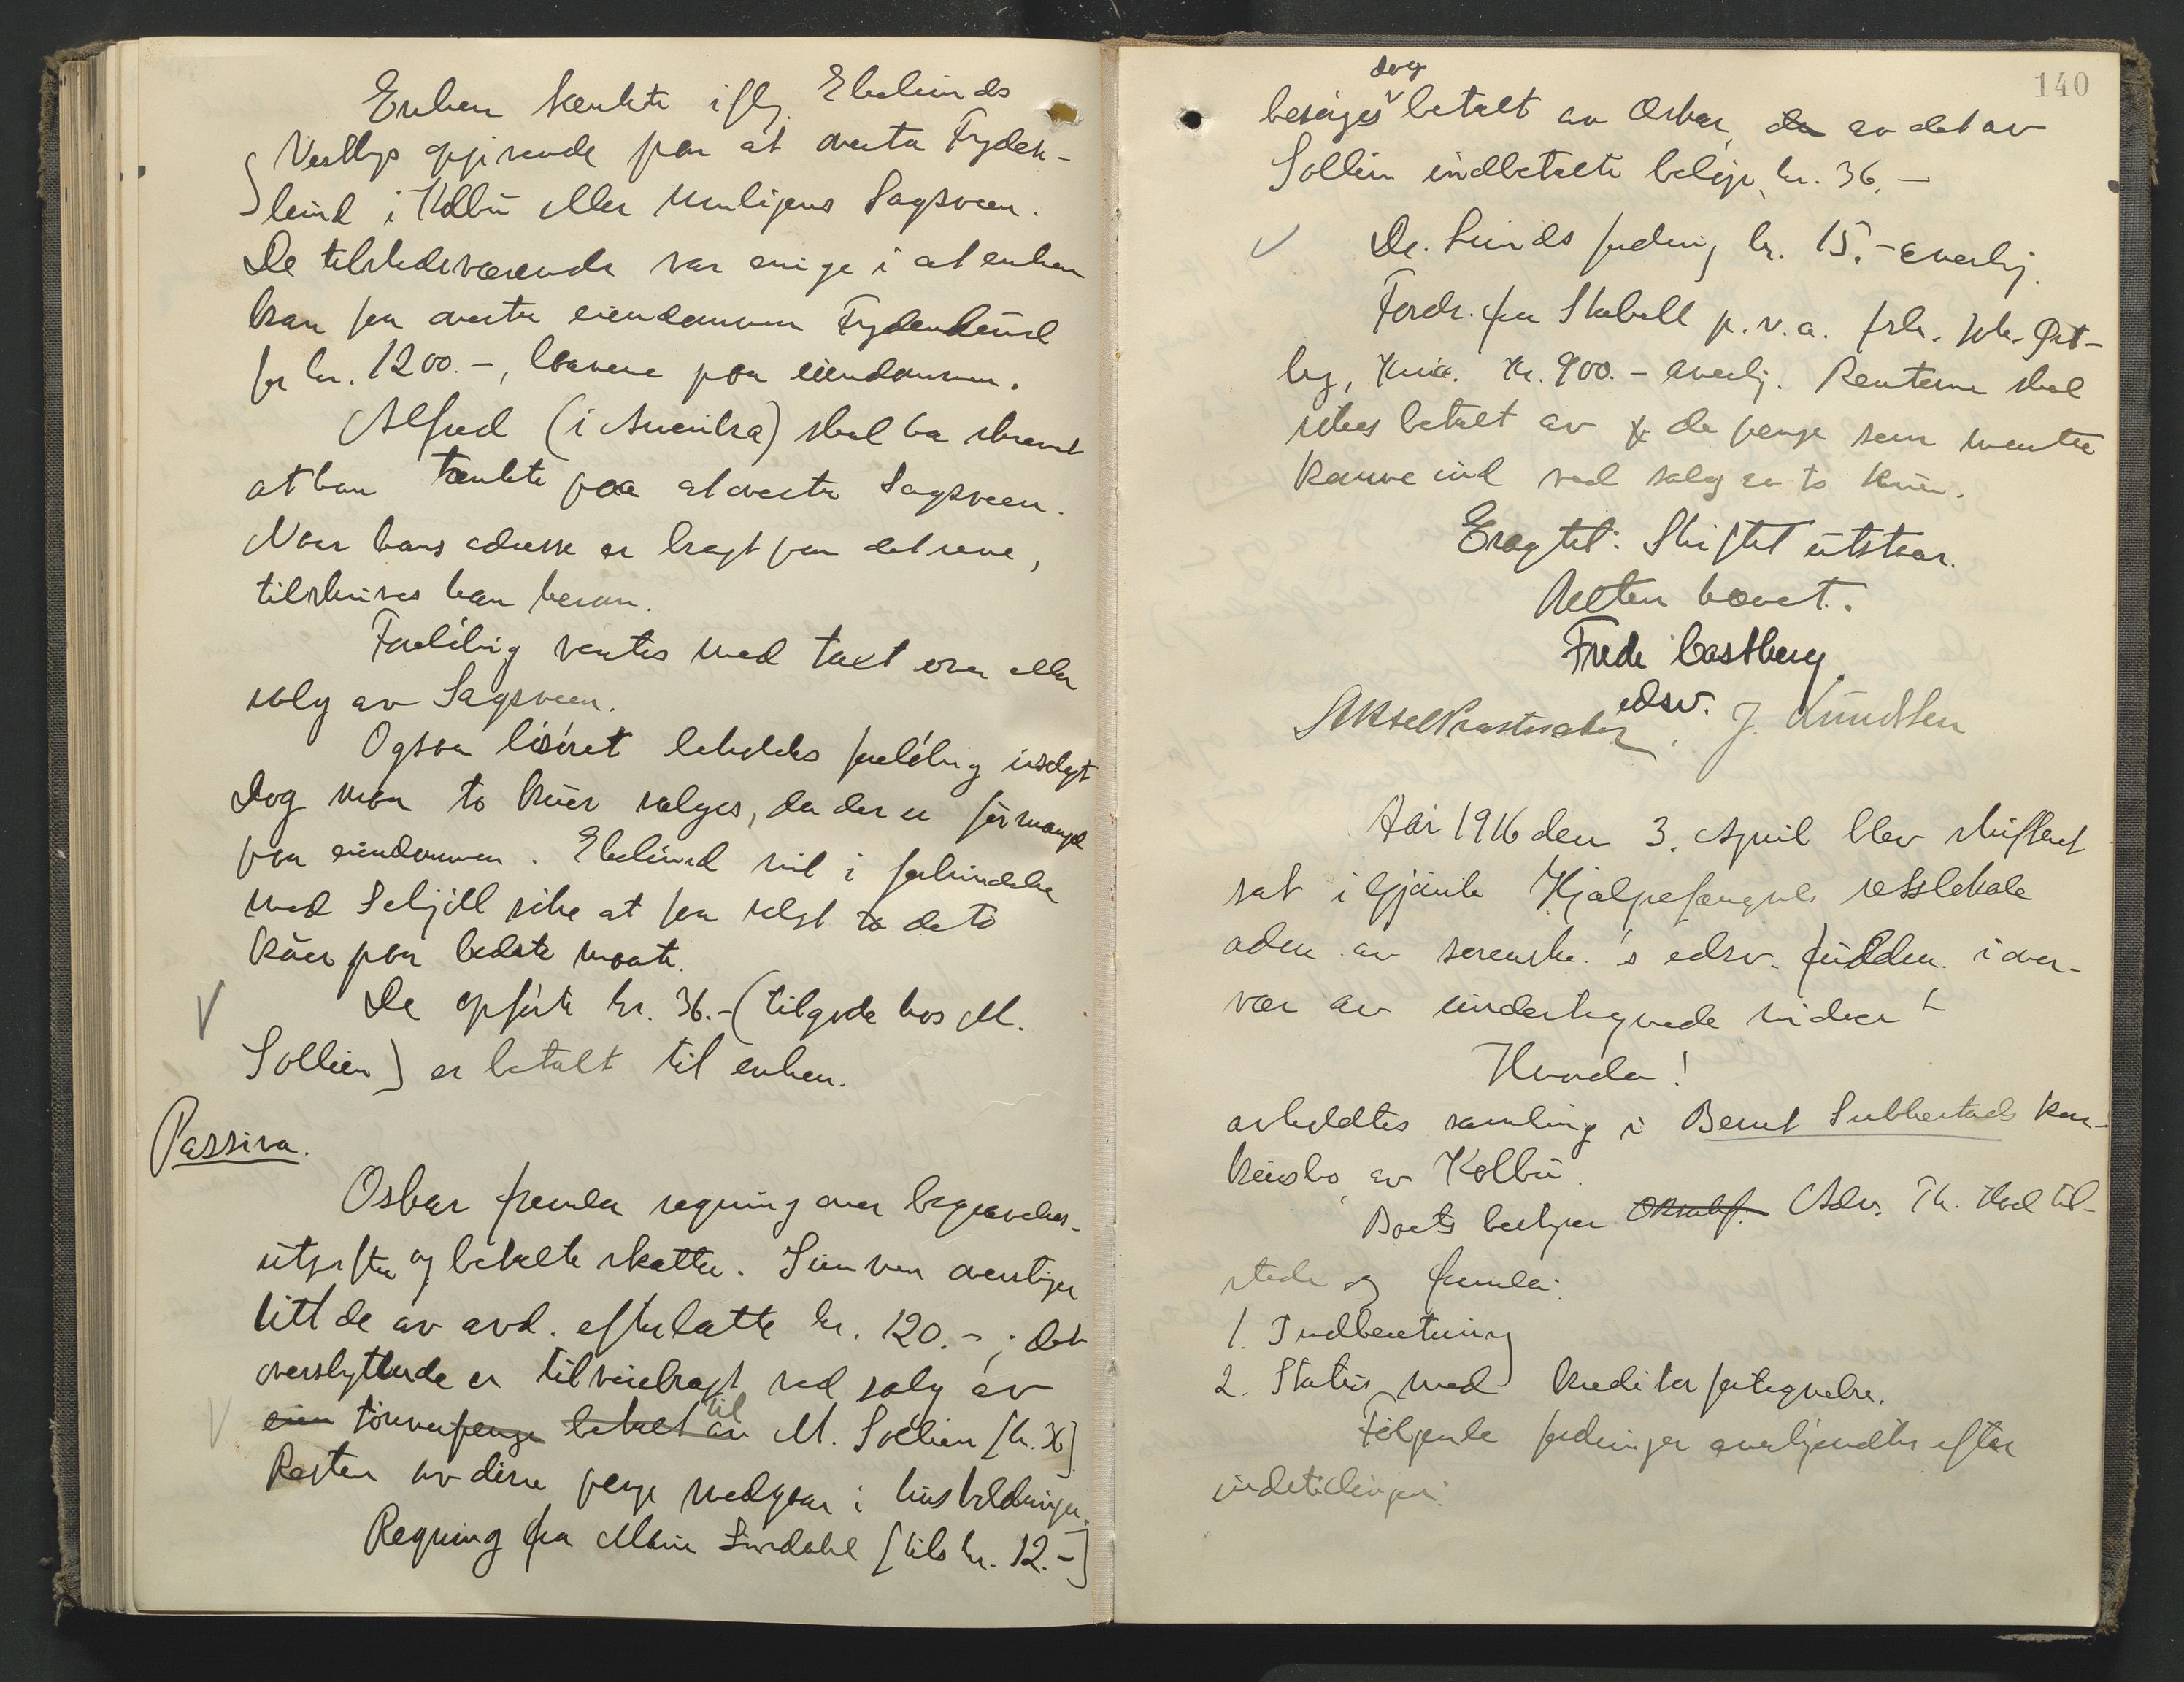 Enken tænkte ifly. Ekelunds
Vestbys opgivende paa at overta Fryden-
lund i Kolbu eller muligens Sagsveen.
De tilstedeværende var enige i at enken
kan faa overta eiendommen Frydenlund
for kr. 1200.-, laanene paa eiendommen.
Alfred (i Amerika) skal ha skrevet
at han tænkte paa at overta Sagsveen.
Naar hans adresse er bragt paa det rene,
tilskrives han herom.
Foreløbig ventes med taxt over eller
salg av Sagsveen.
Ogsaa løsøret beholdes foreløbig usolgt
Dog maa to kuer sælges, da der er formangel
paa eiendommen. Ekelund vil i forbindelse
med Schjøll søke at faa solgt to de to
kuer paa bedste maate.
De opførte kr. 36.- (tilgode hos M.
Sollien) er betalt til enken.
Passiva.
Oskar fremla regning over begravelses-
utgifter og betalte skatter. Summen overstiger
litt de av avd. efterlatte kr. 120.-; det
overskytende er tilveiebragt ved salg av
en tømmerpenge betalt av til M. Sollien [kr. 36]
Resten av disse penge medgaar i husholdningen.
Regning fra Marie Surdahl [tils kr. 12.-]
140
dog
besørges betalt av Oskar, da av det av
Sollien indbetalte beløp, kr. 36.-
Dr. Lunds fordring kr. 15.- anerkj.
Fordr. fra Stabell p.v.a. frk. Joh. Øst-
by, Kra. Kr. 900.- anerkj. Renterne skal
søkes betalt av de penge som ventes
komme ind ved salg av to kuer.
Eragtet: Skiftet utstaar.
Retten hævet.
Frede Castberg
edsv.
Aksel J. Knudsen
Aar 1916 den 3. April blev skifteret
sat i Gjøvik Hjælpefængsels retslokale
adm. av sorenskr.'s edsv. fuldm. i over-
vær av undertegnede vidner
Hvorda!
avholdtes samling i Bernt Subberstads kon-
kursbo av Kolbu.
Boets bestyrer Adv. Th. Hoel til-
stede og fremla:
1. Indberetning
2. Status med kreditorfortegnelse.
Følgende fordringer anerkjendtes efter
indstillingen: